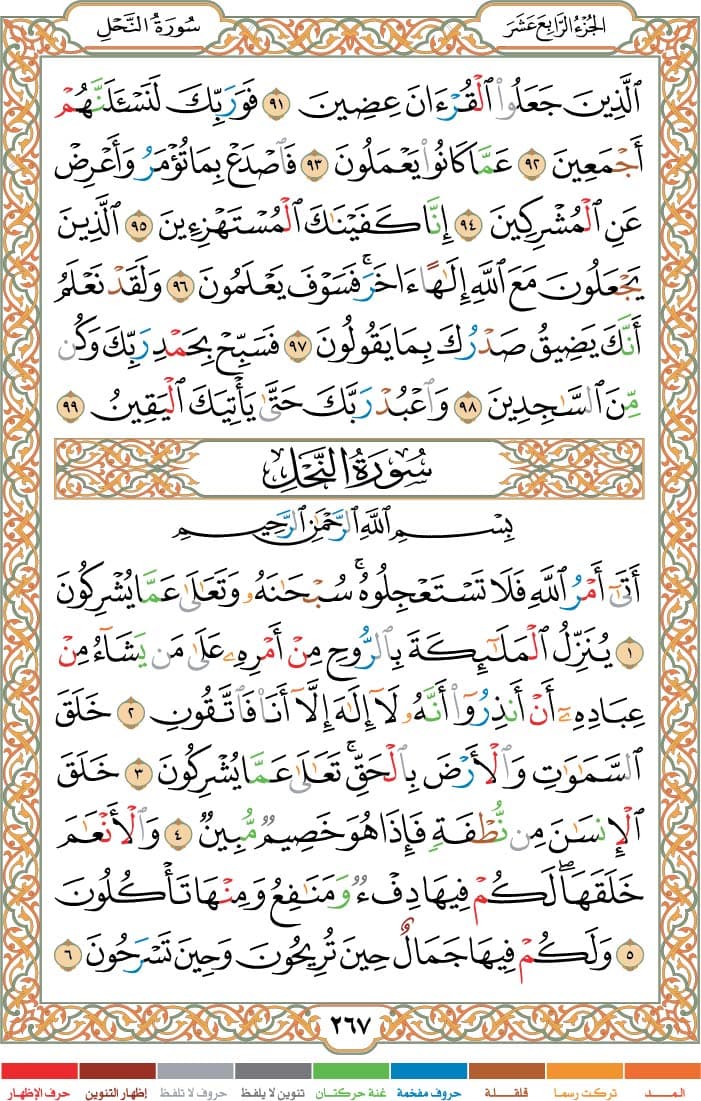 الجزء الرابع عشر
سورة النحل
الَّذِينَ جَعَلُوا الْقُرْءَانَ عِضِينَ ٩١ فَوَرَبِّكَ لَنَسْـَٔلَنَّهُمْ
أَجْمَعِينَ ٩٢ عَمَّا كَانُوا يَعْمَلُونَ ٩٣ فَاصْدَعْ بِمَا تُؤْمَرُ وَأَعْرِضْ
عَنِ الْمُشْرِكِينَ ٩٤ إِنَّا كَفَيْنَٰكَ الْمُسْتَهْزِءِينَ ٩٥ الَّذِينَ
يَجْعَلُونَ مَعَ اللَّهِ إِلَٰهًا ءَاخَرَ ۚ فَسَوْفَ يَعْلَمُونَ ٩٦ وَلَقَدْ نَعْلَمُ
أَنَّكَ يَضِيقُ صَدْرُكَ بِمَا يَقُولُونَ ٩٧ فَسَبِّحْ بِحَمْدِ رَبِّكَ وَكُن
مِّنَ السَّٰجِدِينَ ٩٨ وَاعْبُدْ رَبَّكَ حَتَّىٰ يَأْتِيَكَ الْيَقِينُ ٩٩
سورة النحل
بِسْمِ اللَّهِ الرَّحْمَٰنِ الرَّحِيمِ
أَتَىٰٓ أَمْرُ اللَّهِ فَلَا تَسْتَعْجِلُوهُ ۚ سُبْحَٰنَهُۥ وَتَعَٰلَىٰ عَمَّا يُشْرِكُونَ
١ يُنَزِّلُ الْمَلَٰٓئِكَةَ بِالرُّوحِ مِنْ أَمْرِهِۦ عَلَىٰ مَن يَشَآءُ مِنْ
عِبَادِهِۦٓ أَنْ أَنذِرُوٓا أَنَّهُۥ لَآ إِلَٰهَ إِلَّآ أَنَا فَاتَّقُونِ ٢ خَلَقَ
السَّمَٰوَٰتِ وَالْأَرْضَ بِالْحَقِّ ۚ تَعَٰلَىٰ عَمَّا يُشْرِكُونَ ٣ خَلَقَ
الْإِنسَٰنَ مِن نُّطْفَةٍ فَإِذَا هُوَ خَصِيمٌ مُّبِينٌ ٤ وَالْأَنْعَٰمَ
خَلَقَهَا ۗ لَكُمْ فِيهَا دِفْءٌ وَمَنَٰفِعُ وَمِنْهَا تَأْكُلُونَ
٥ وَلَكُمْ فِيهَا جَمَالٌ حِينَ تُرِيحُونَ وَحِينَ تَسْرَحُونَ ٦
٢٦٧
المــد تركت رسما قلقلة حروف مفخمة غنة حركتان تنوين لا يلفظ حروف لا تلفظ إظهار التنوين حرف الإظهار